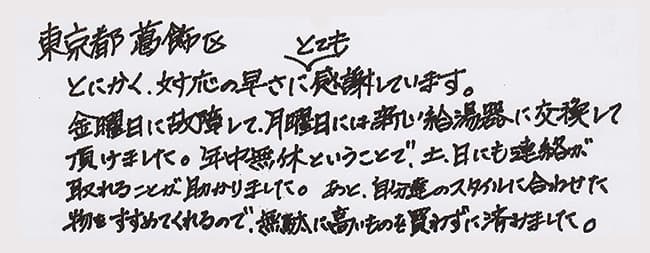 東京都 葛飾区
とても
とにかく、対応の早さに感謝しています。
金曜日に故障して、月曜日には新しい給湯器に交換して
頂けました。年中無休ということで、土、日にも連絡が
取れることが助かりました。あと、自分達のスタイルに合わせた
物をすすめてくれるので、無駄に高いものを買わずに済みました。